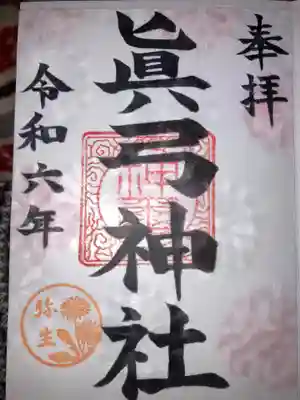 奉拝
眞弓神社
令和六年
弥生